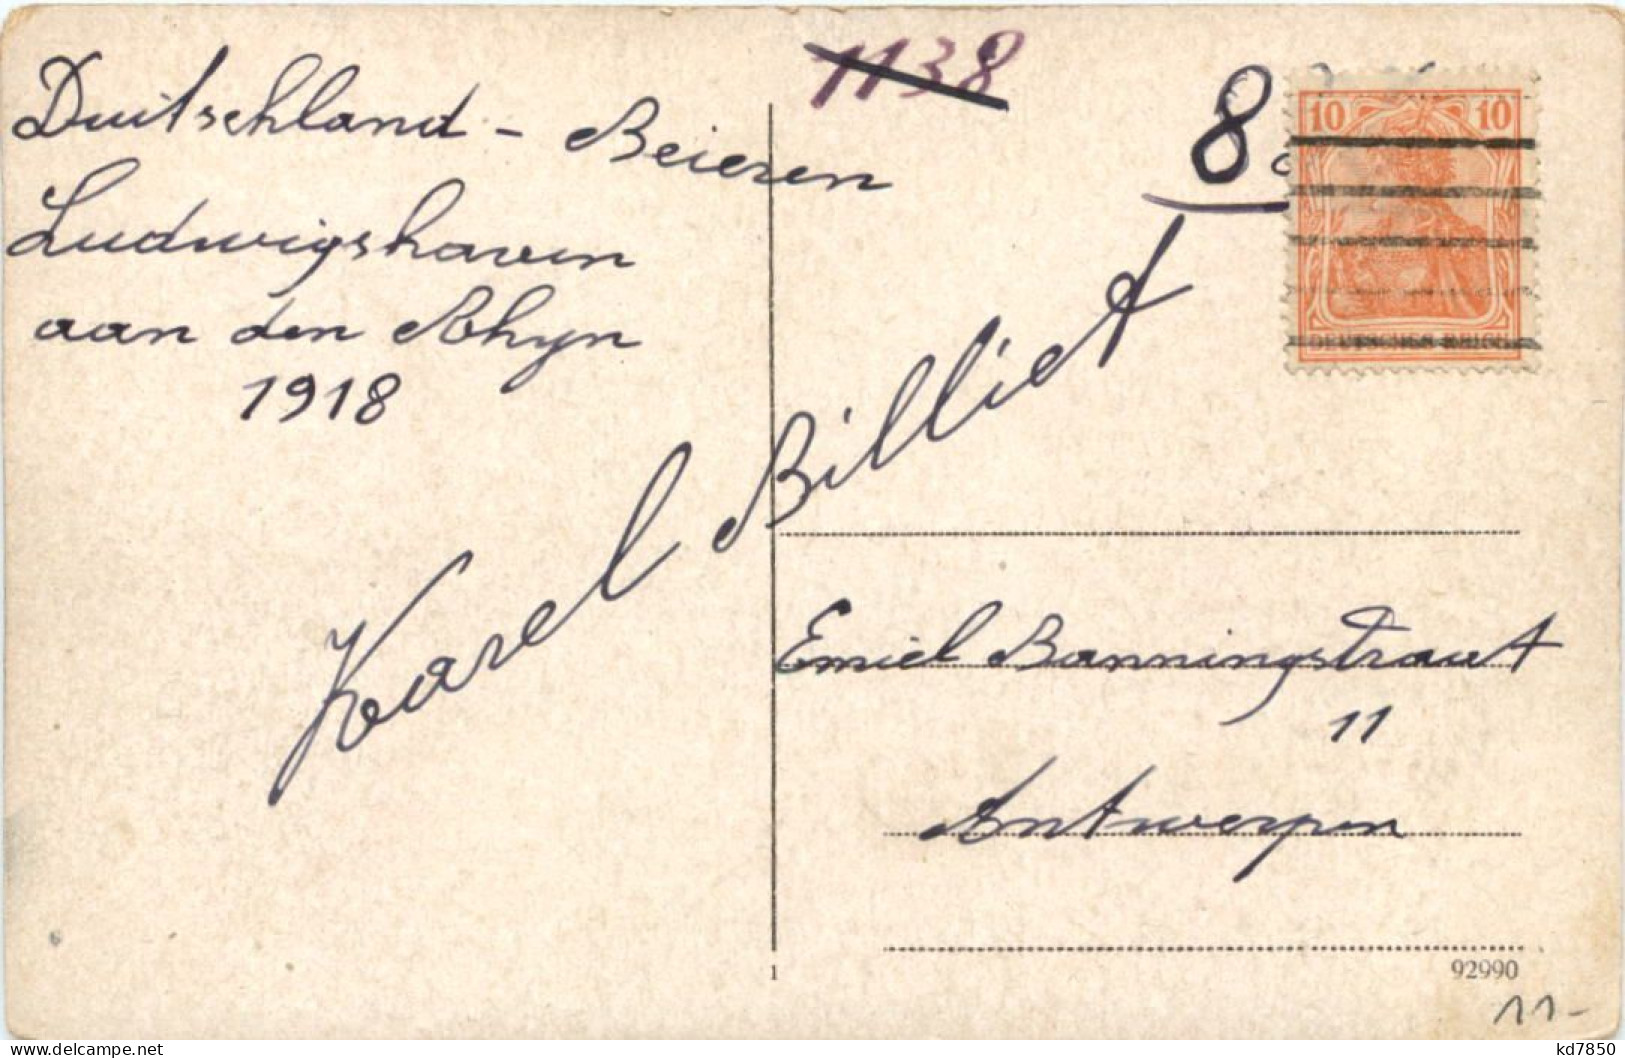 1138
8
10 10
DEUTSCHES REICH
Duitschland - Beieren
Ludwigshaven
aan den Rhyn
1918
Karel Billiet
Emiel Banningstraat
11
Antwerpen
1
92990
11-
kd7850
www.delcampe.net